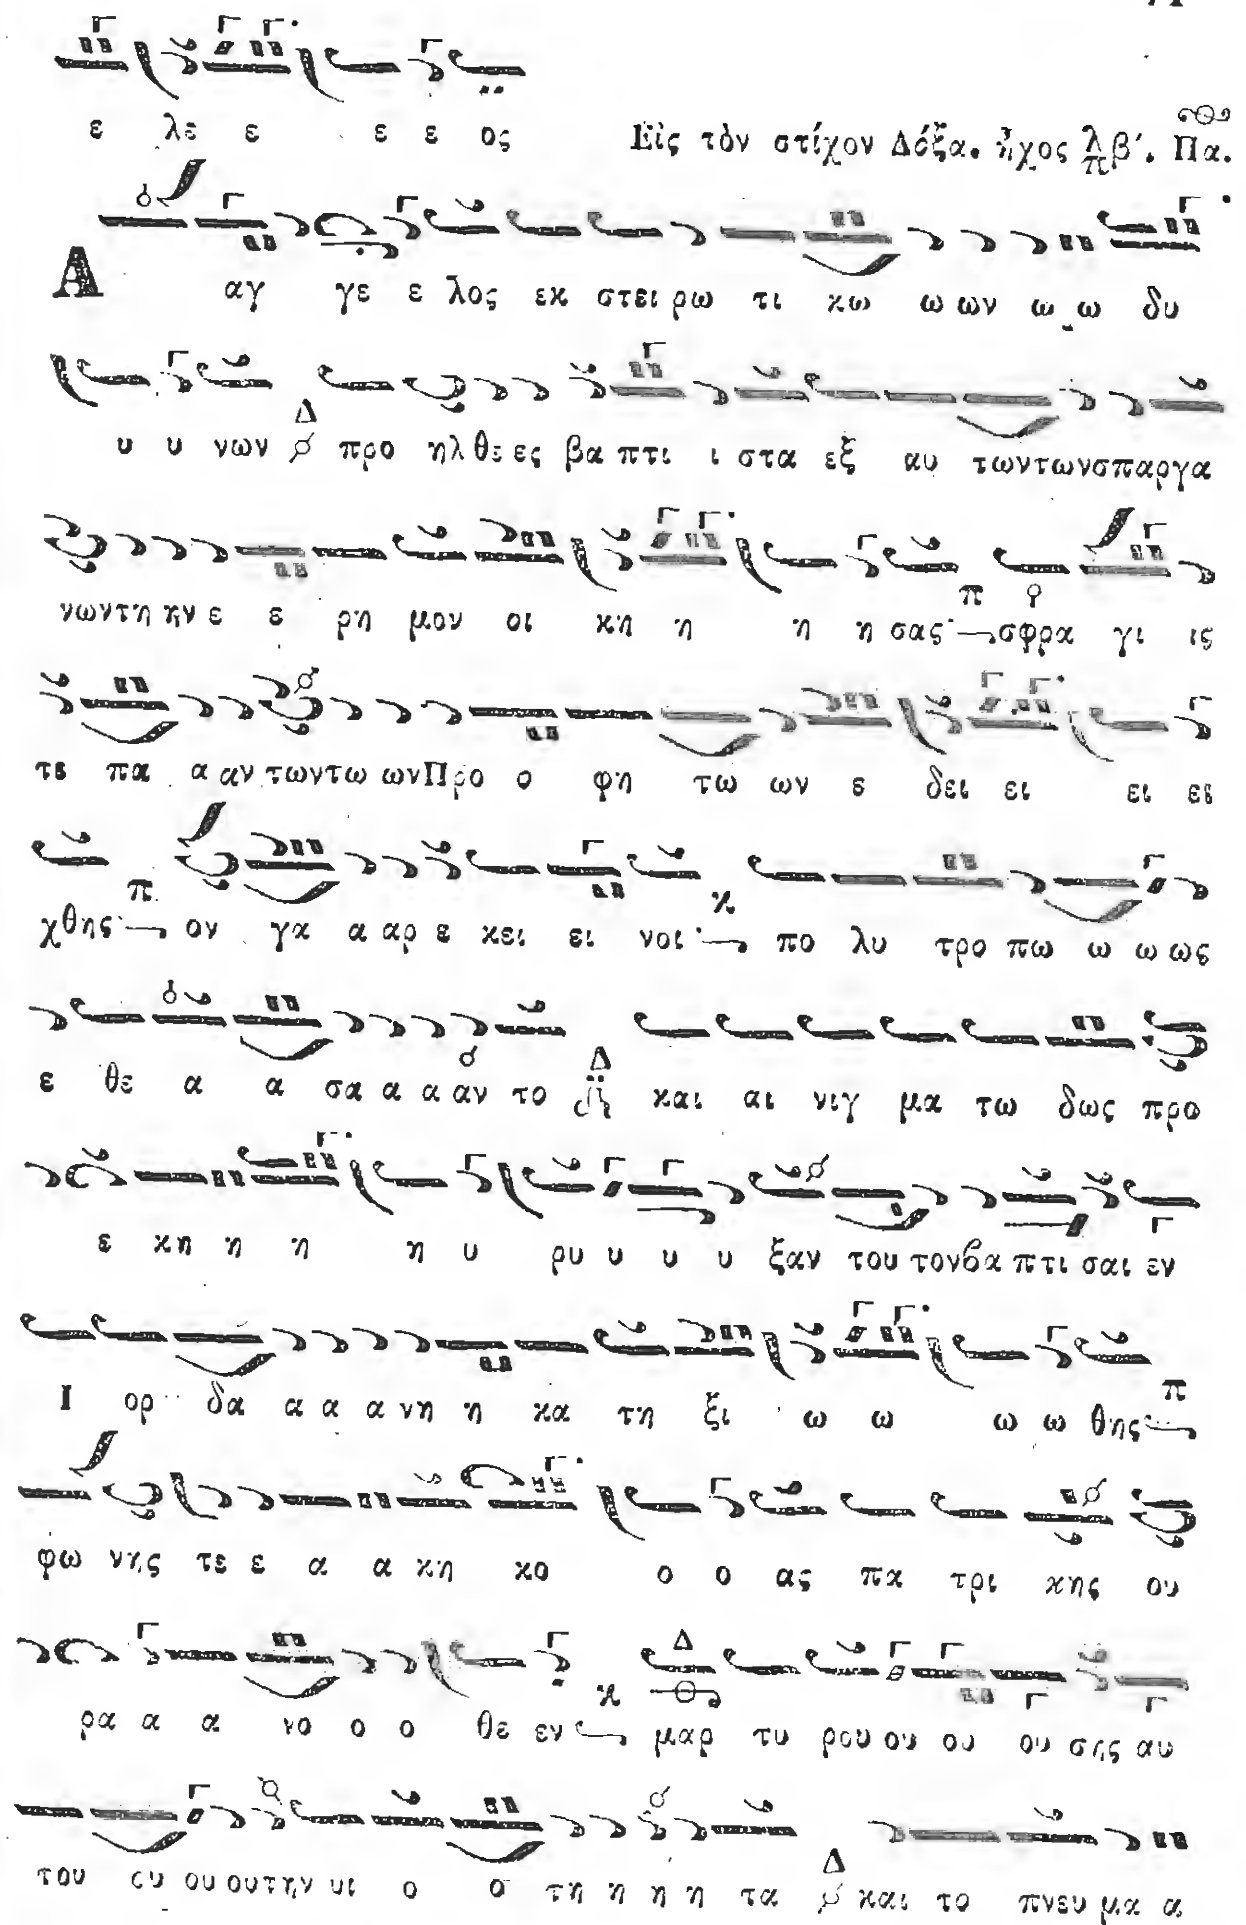 ε λε ε ε ε ος Εἰς τὸν στίχον Δόξα. ἦχος λπ β´. Πα.
Α αγ γε ε λος εκ στει ρω τι κω ω ων ω ω δυ
υ υ νων Δ προ ηλ θε ες βα πτι ι στα εξ αυ των των σπαργα
νων τη ην ε ε ρη μον οι κη η η η σας π σφρα γι ις
τε πα α αν των τω ων Προ ο φη τω ων ε δει ει ει ει
χθης π ον γα α αρ ε κει ει νοι κ πο λυ τρο πω ω ω ως
ε θε α α σα α α αν το Δ και αι νιγ μα τω δως προ
ε κη η η η υ ρυ υ υ υ ξαν του τον βα πτι σαι εν
Ι ορ δα α α α νη η κα τη ξι ω ω ω ω θης π
φω νης τε ε α α κη κο ο ο ας πα τρι κης ου
ρα α α νο ο ο θε εν κ Δ μαρ τυ ρου ου ου ου σης αυ
του ου ου ου την υι ο ο τη η η η τα Δ και το πνευ μα α